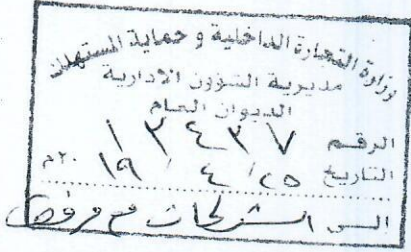 وزارة التجارة الداخلية و حماية المستهلك
مديرية الشؤون الادارية
الديوان العام
الرقم ١٢٤٣٧
التاريخ ٢٥ / ٤ / ١٩ ٢٠م
الى الشركات مع مرفق